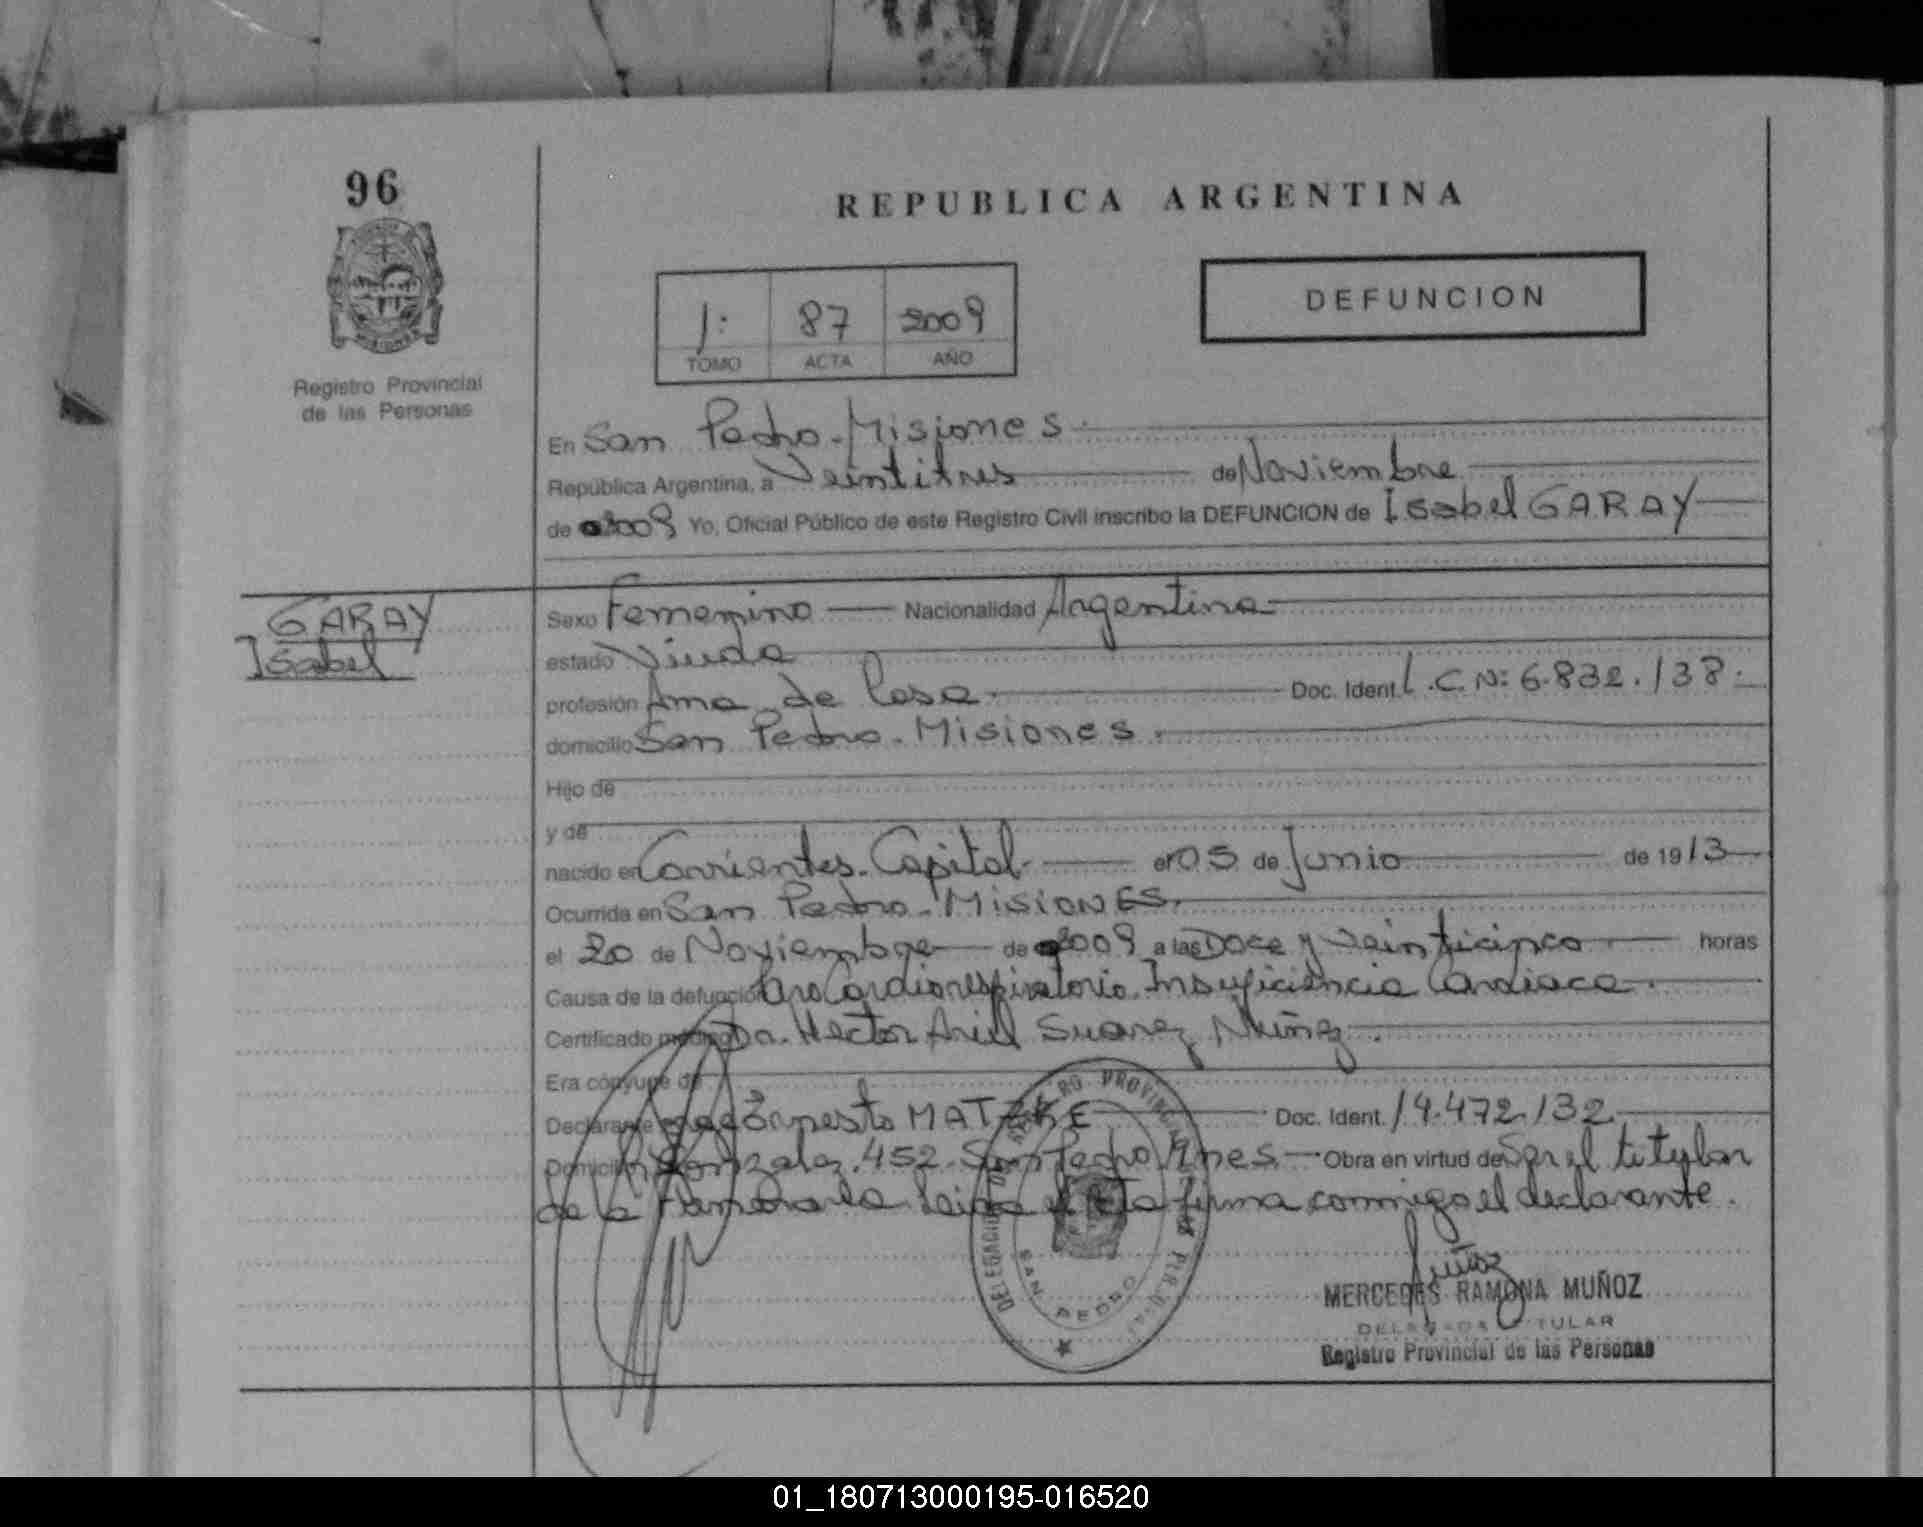 96
REPUBLICA ARGENTINA
DEFUNCION
1: 87 2009
TOMO ACTA AÑO
Registro Provincial
de las Personas
En San Pedro - Misiones
República Argentina, a Veintitres de Noviembre
de 2009 Yo, Oficial Público de este Registro Civil inscribo la DEFUNCION de Isabel GARAY
GARAY
Isabel
Sexo Femenino Nacionalidad Argentina
estado Viuda
profesión Ama de Casa. Doc. Ident. L.C. Nº: 6.832.138.
domicilio San Pedro - Misiones.
Hijo de
y de
nacido en Corrientes. Capital. el 05 de Junio de 1913
Ocurrida en San Pedro - MISIONES.
el 20 de Noviembre de 2009 a las Doce y Veinticinco horas
Causa de la defunción Paro Cardiorespiratorio. Insuficiencia Cardiaca.
Certificado médico Dr. Hector Ariel Suarez Nuñez.
Era cónyuge de
Declarante Ernesto MATZKE Doc. Ident. 14.472.132
Domicilio Gonzalez. 452. San Pedro Mnes. Obra en virtud de Ser el titular
de la Leida el Acta firma conmigo el declarante.
REGISTRO PROVINCIAL DE LAS PER.
DELEGACION
SAN PEDRO
Muñoz
MERCEDES RAMONA MUÑOZ
DELEGADA TITULAR
Registro Provincial de las Personas
MISIONES
01_180713000195-016520